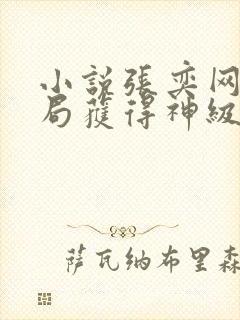 小說張奕网
局獲得神級
萨瓦纳布里森